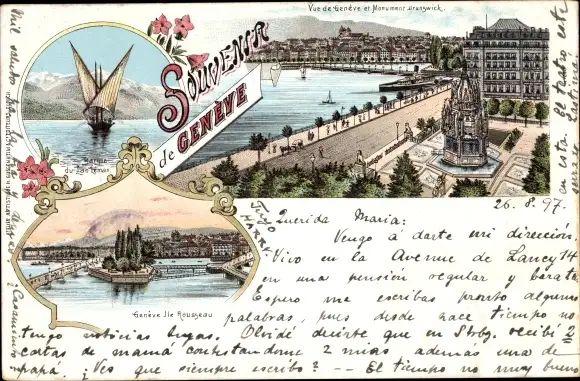 Vue de Genève et Monument Brunswick.
Souvenir
de GENÈVE
Barque
du Lac Léman.
Genève Ile Rousseau
26.8.97.
Querida Maria:
Vengo á darte mi dirección.
Vivo en la Avenue de Lancy 14
en una pensión regular y barata
Espero me escribas pronto algunas
palabras, pues desde hace tiempo no
tengo noticias tuyas. Olvidé decirte que en Strbg. recibí 2
cartas de mamá contestandome 2 mias además una de
papá ¿Ves que siempre escribo? — El tiempo no muy bueno
en esta. El teatro este
Tuyo
Mil saludos á la